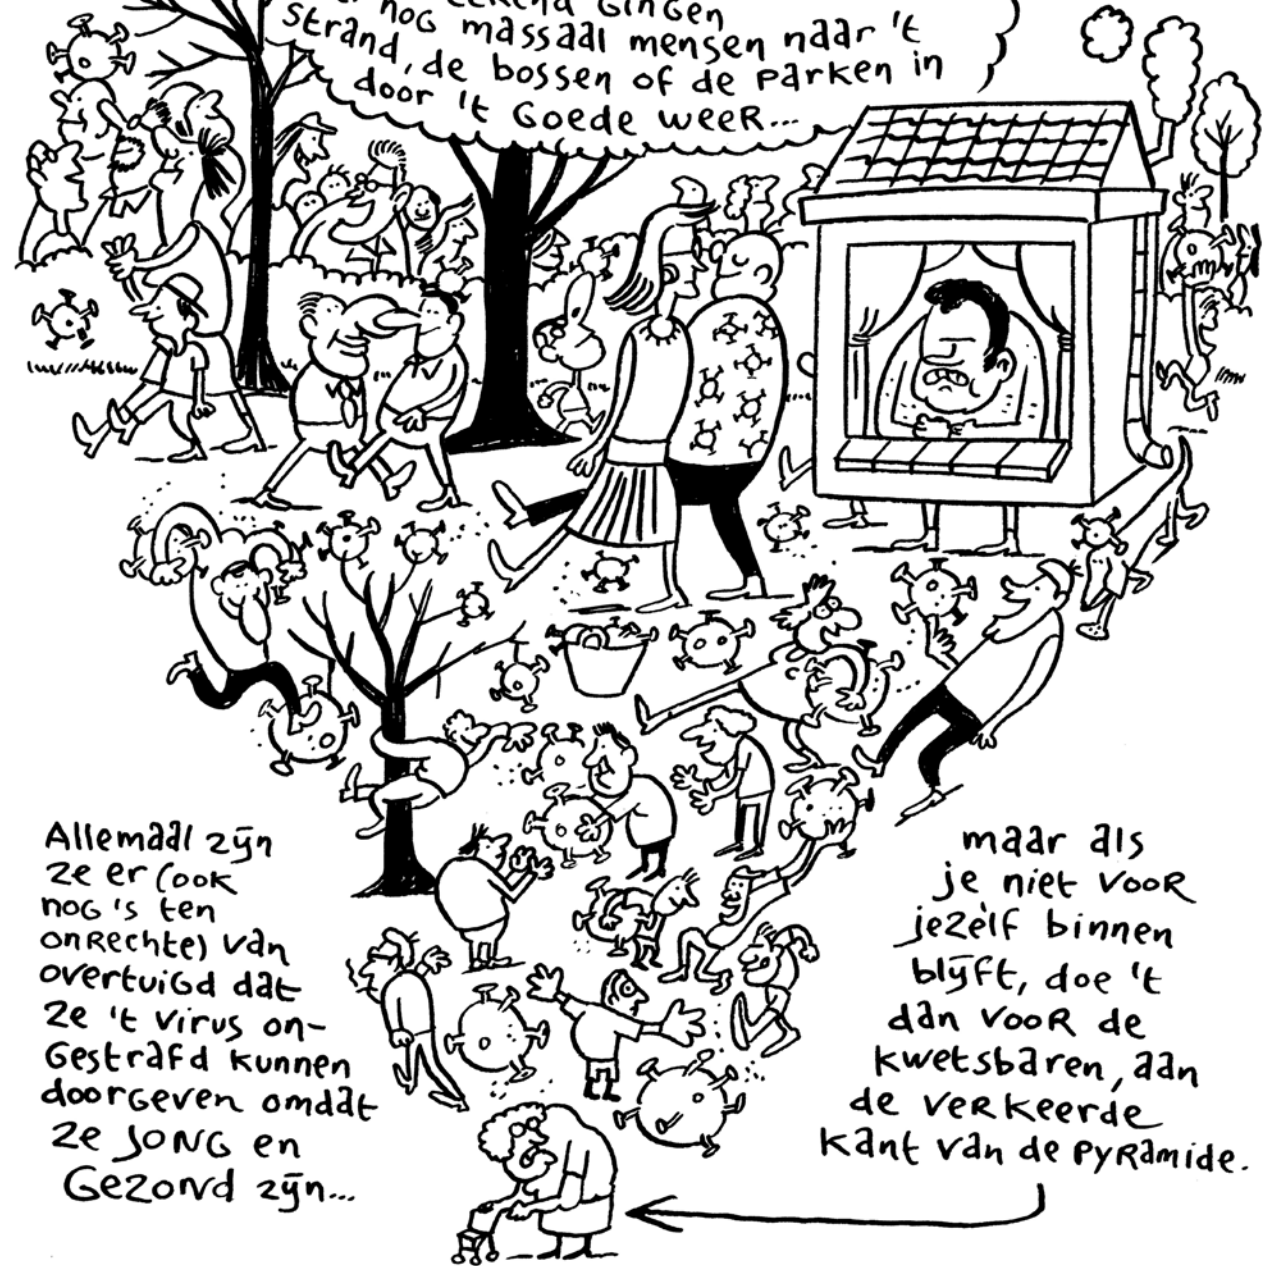 nog massaal mensen naar 't
strand, de bossen of de parken in
door 't goede weer...
Allemaal zijn
ze er (ook
nog 's ten
onrechte) van
overtuigd dat
ze 't virus on-
gestraft kunnen
doorgeven omdat
ze JONG en
GEZOND zijn...
maar als
je niet voor
jezèlf binnen
blijft, doe 't
dan voor de
kwetsbaren, aan
de verkeerde
kant van de pyramide.